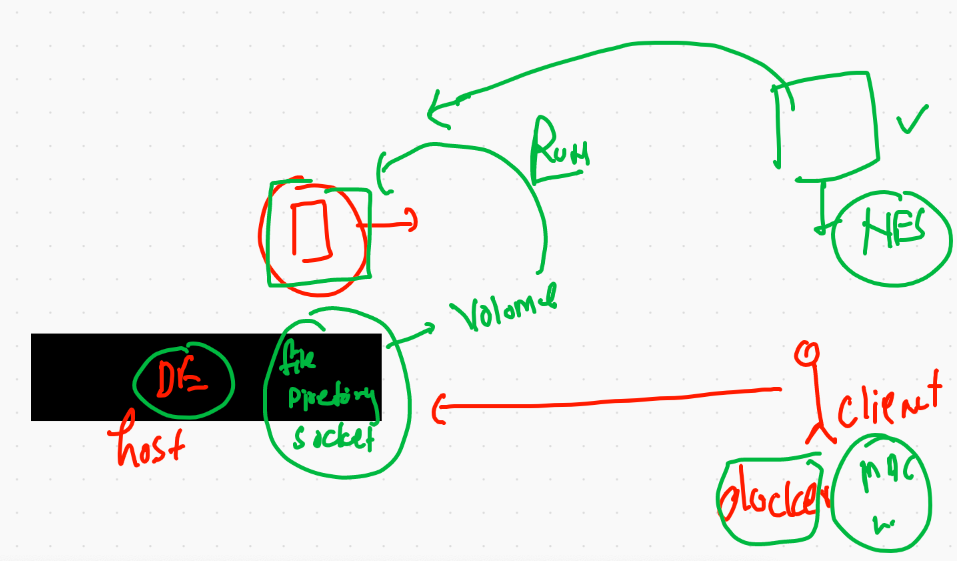 Run
HES
Volome
file
DE
Directory
socket
host
client
docker
MAC